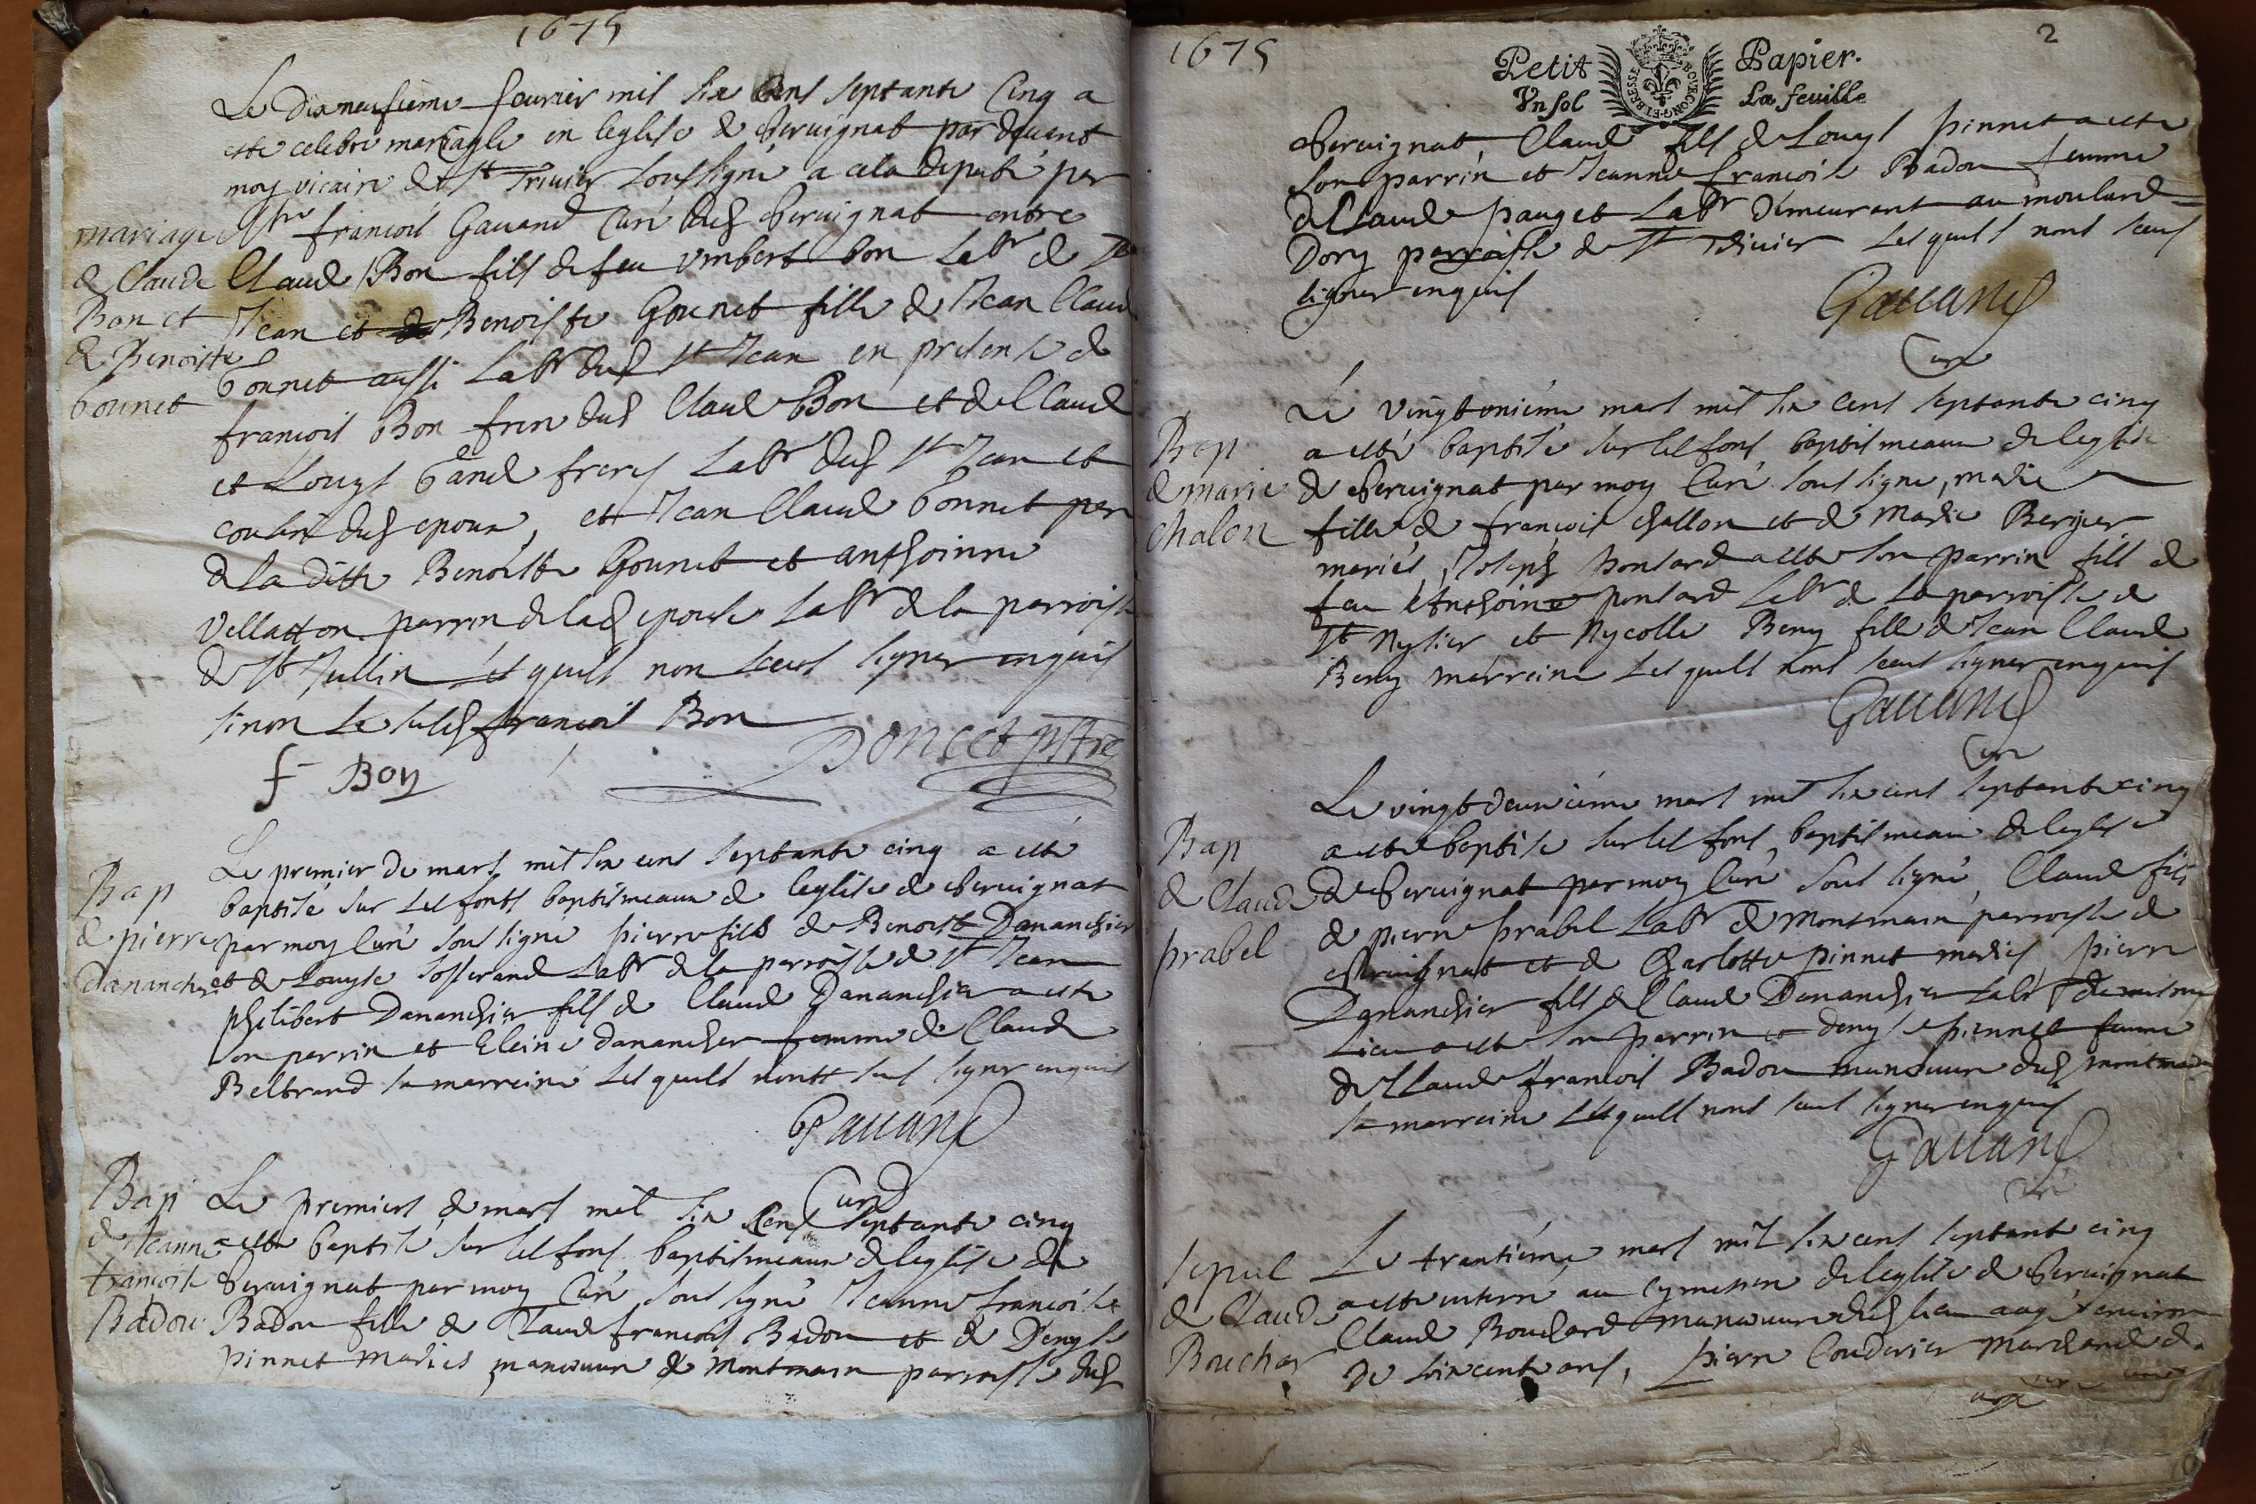 1675
Le dixneufieme feurier mil six cens septante cinq a
esté celebré mariagle en leglise de Seruignat par deuant
moy vicaire de St Triuier soussigné a cela deputé par
Mre francois Gauand Curé dud Seruignat entre
mariage
de Claude
Bon et
de Benoiste
Gounet
Claude Bon fils de feu vmbert bon Labr de St
Jean et Benoiste Gounet fille de Jean Claude
Gounet aussi Labr dud St Jean en presence de
francois Bon frere dud Claude Bon et de Claude
et Louys frere Labr dud St Jean et
cousin dud epoux, et Jean Claude Gounet pere
de la ditte Benoiste Gounet et anthoinne
Vellatton parrin de lad epouse Labr de la parroisse
de St Jullin lesquels non sceus signer enquis
sinon le susd francois Bon
f Bon
Doncet pstre
Bap
de pierre
Dananchier
Le premier de mars mil six cens septante cinq a esté
baptisé sur les fonts baptismeaux de leglise de Seruignat
par moy Curé sous signé pierre fils de Benoist Dananchier
et de Louyse Josserand Labr de la parroisse de St Jean
philibert Dananchier fils de Claude Dananchier a esté
son parrin et Eleine dananchier femme de Claude
Beltrand sa marreine Lesquels nont sceus signer enquis
Gauand
Curé
Bap
de Jeanne
francoise
Badou
Le premiers de mars mil six cens septante cinq
a esté baptisé sur les fons baptismeaux de leglise de
Seruignat par moy Curé sous signé Jeanne francoise
Badou fille de Claude francois Badou et de Denyse
pinnet mariés manouure de Montmain parroisse dud
1675
2
Petit Papier.
Vn sol La feuille
BOVRGON·ET·BRESSE
Seruignat, Claude fils de Louys pinnet a esté
son parrin et Jeanne francoise Badou femme
de Claude pauget Labr demeurant au moulard
Dory parroisse de St Triuier Lesquels nont sceus
signer enquis
Gauand
Curé
Bap
de marie
chalon
Le vingtonieme mars mil six cens septante cinq
a esté baptisé sur les fons baptismeaux de leglise
de Seruignat par moy Curé sous signé, marie
fille de francois challon et de marie Bergier
mariés, Joseph ponsard a esté son parrin fils de
feu Anthoine ponsard Labr de la parroisse de
St Nysier et Nycolle Beny fille de Jean Claude
Beny marreine Lesquels nont sceus signer enquis
Gauand
Curé
Bap
de Claude
prabel
Le vingtdeuxieme mars mil six cens septante cinq
a esté baptisé sur les fons baptismeaux de leglise
de Seruignat par moy Curé sous signé, Claude fils
de pierre prabel Labr de Montmain parroisse de
Seruignat et de Charlotte pinnet mariés pierre
Dananchier fils de Claude Dananchier Labr
Lieu a esté son parrin et denyse pinnet femme
de Claude francois Badou manouure dud montmain
sa marreine Lesquels nont sceus signer enquis
Gauand
Curé
sepul
de Claude
Bouchar
Le trantiéme mars mil six cens septante cinq
a esté enterré au cymetiere de leglise de Seruignat
Claude Bouchard manouure dud lieu aagé denviron
de soixante ans, pierre Couderier Marchand de